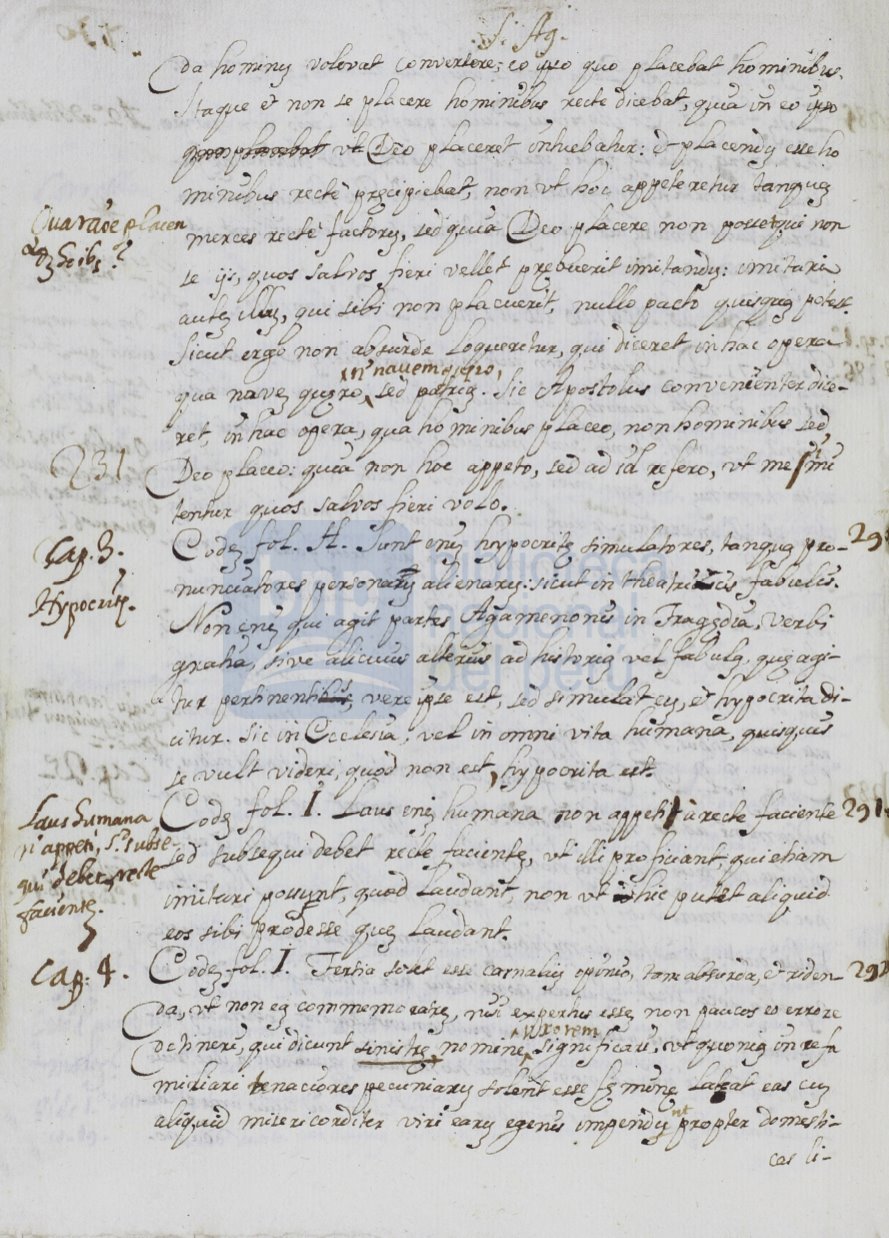 S. Ag.
da hominū volebat convertere; eo ipso quo placebat hominibus.
Itaque et non se placere hominibus recte dicebat, quia in eo ipso
vt Deo placeret intuebatur: et placendū esse ho
minibus recte precipiebat, non vt hoc appeteretur tanquā
Qua raōe placen
merces recte factorū, sed quia Deo placere non posset qui non
dū hoībs?
se ijs, quos salvos fieri vellet preberet imitandū: imitari
autē illū, qui sibi non placuerit, nullo pacto quisquā potest.
Sicut ergo non absurde loqueretur, qui diceret in hac opera
qua navē quero, non navem quero, sed patriā. Sic Apostolus convenienter dice-
ret, in hac opera, qua hominibus placeo, non hominibus sed
231
Deo placeo: quia non hoc appeto, sed ad id refero, vt me imi
tentur quos salvos fieri volo.
Cap. 3.
Codē fol. H. Sunt enī hypocritę simulatores, tanquā pro-
29
nunciatores personarū alienarū: sicut in theatricis fabulis.
Hypocritę.
Non enī qui agit partes Agamenonis in Tragędia, verbi
gratia, sive alicuius alterius ad historiā vel fabulā, quę agi-
tur pertinentis, vere ipse est, sed simulat eū, et hypocrita di-
citur. Sic in Ecclesia, vel in omni vita humana, quisquis
se vult videri, quod non est, hypocrita est.
Laus humana
Codē fol. I. Laus enī humana non appeti a recte faciente
291.
n̄ appeti, sed subse-
sed subsequi debet recte facientē, vt illi proficiant, qui etiam
qui debet recte
imitari possunt, quod laudant, non vt hic putet aliquid
facientē.
eos sibi prodesse quē laudant.
Cap. 4.
Codē fol. I. Tertia solet esse carnaliū opinio, tam absurda, et riden-
292
da, vt non eā commemorarē, nisi expertus essē non paucos eo errore
detineri, qui dicunt sinistrę nominē uxorem significari, vt quoniā in re fa
miliari tenaciores pecuniarū solent esse fęminę lateat eas cū
aliquid misericorditer viri earū egenis impendunt propter domesti-
cas li-